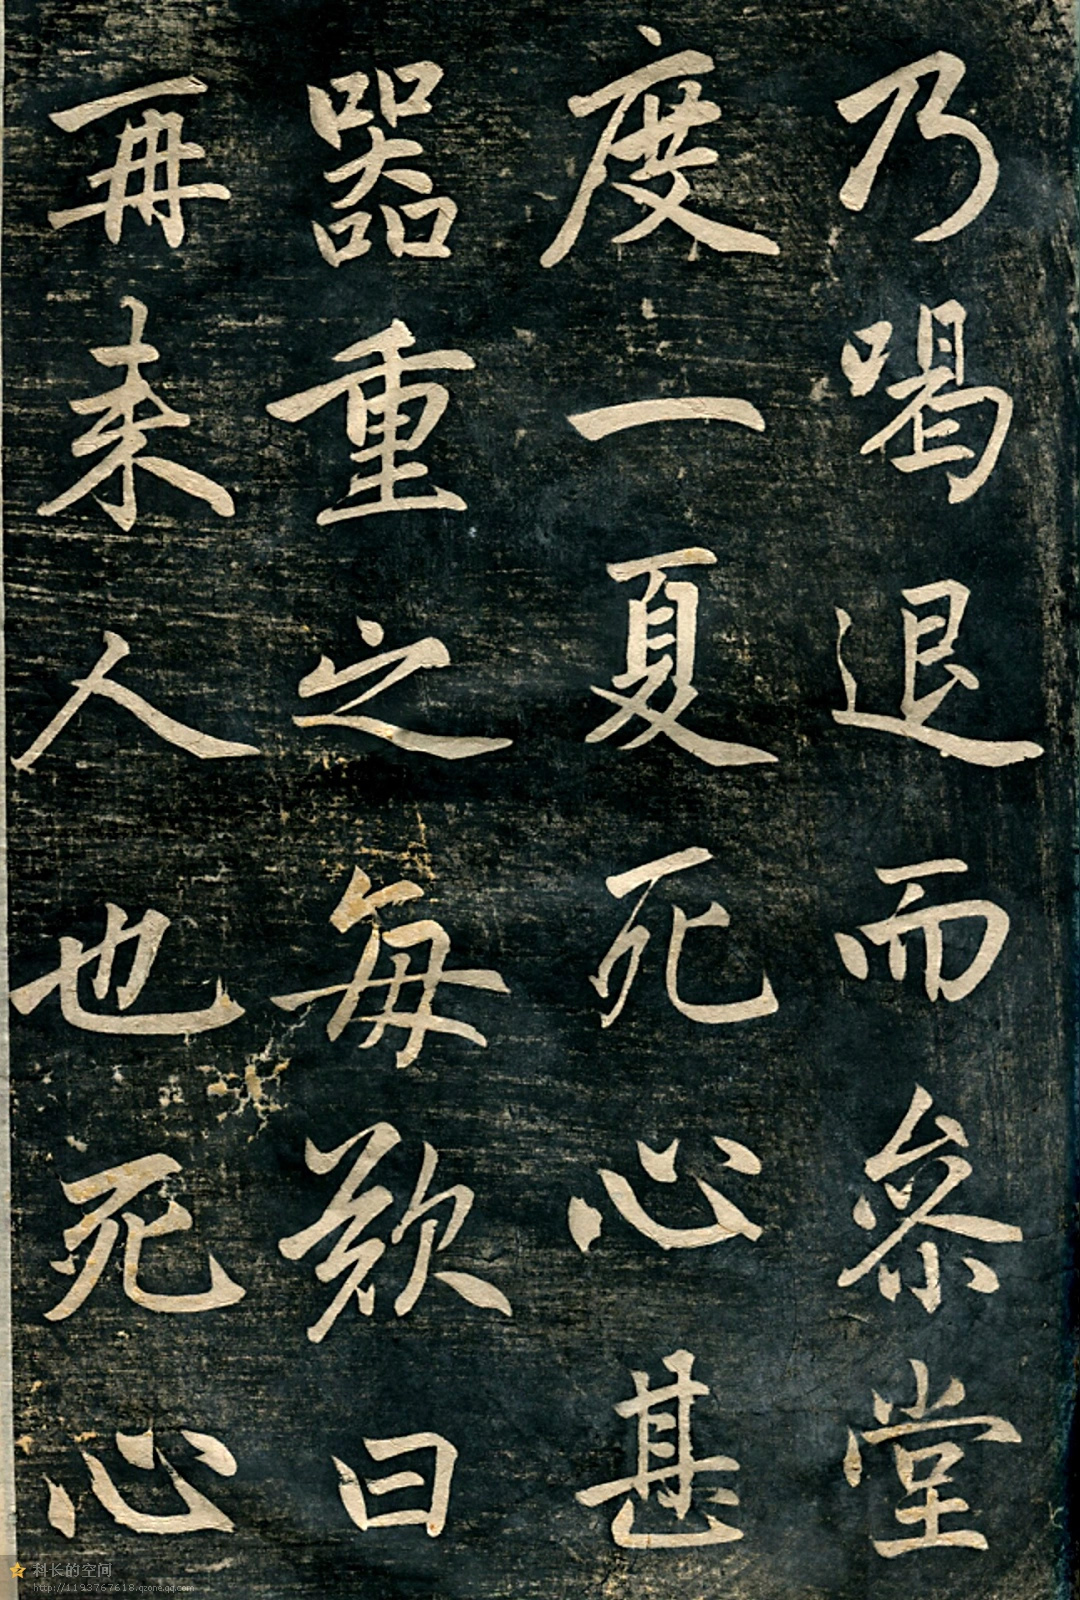 乃喝退而参堂
度一夏死心甚
器重之每欵曰
再来人也死心
科长的空间
http://1193767618.qzone.qq.com